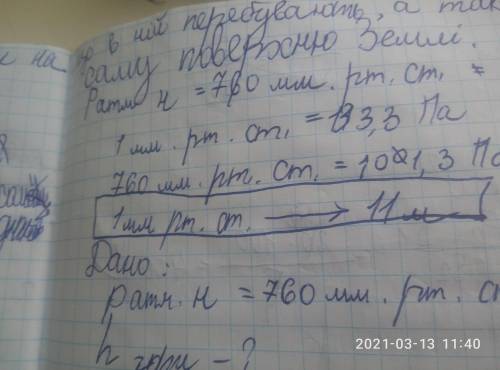 в ній перебувають, а так
на
саму поверхню Землі.
Pатм н = 760 мм. рт. ст. =
1 мм. рт. ст. = 133,3 Па
760 мм. рт. ст. = 101,3 Па
1 мм рт. ст. → 11 м
Дано:
Pатм. н = 760 мм. рт. с
h - ?
2021-03-13 11:40